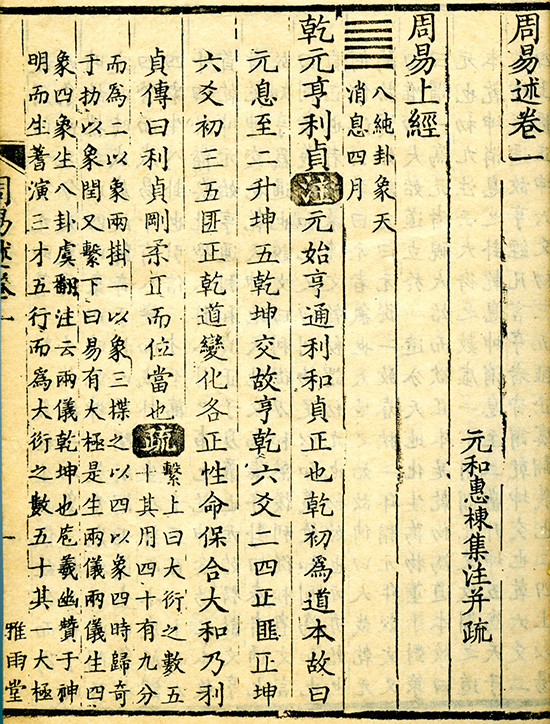 周易述卷一
元和惠棟集注并疏
周易上經
八純卦象天
消息四月
乾元亨利貞注元始亨通利和貞正也乾初爲道本故曰
元息至二升坤五乾坤交故亨乾六爻二四上匪正坤
六爻初三五匪正乾道變化各正性命保合大和乃利
貞傳曰利貞剛柔正而位當也疏繫上曰大衍之數五
十其用四十有九分
而爲二以象兩掛一以象三揲之以四以象四時歸奇
于扐以象閏又繫下曰易有大極是生兩儀兩儀生四
象四象生八卦虞翻注云兩儀乾坤也庖羲幽贊于神
明而生蓍演三才五行而爲大衍之數五十其一大極
周易述卷一
一
雅雨堂